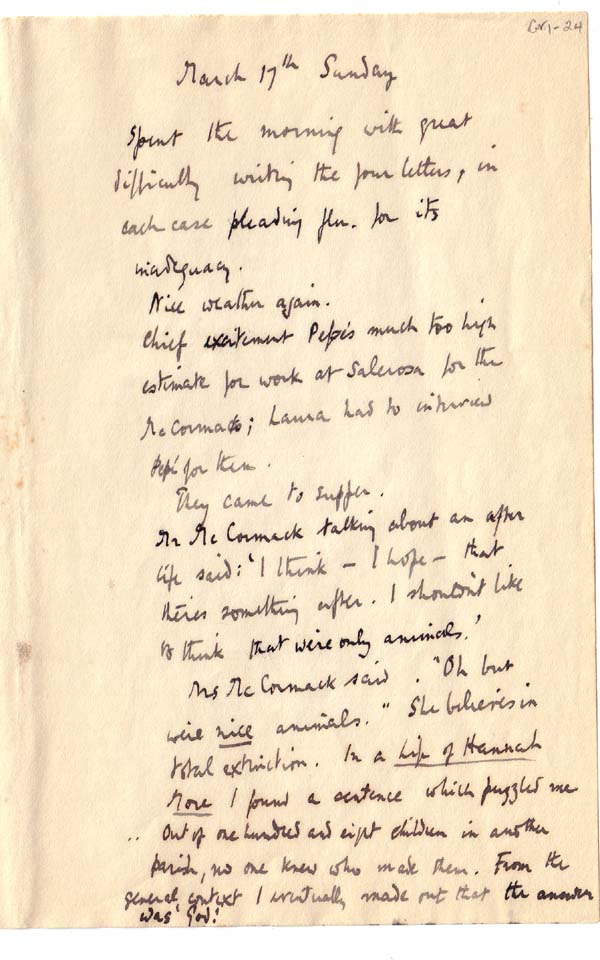 GV1-24
March 17th Sunday
Spent the morning with great
difficulty writing the four letters, in
each case pleading flu. for its
inadequacy.
Nice weather again.
Chief excitement Pepe's much too high
estimate for work at Salerosa for the
McCormacks; Laura had to interview
Pepé for them.
They came to supper.
Mr McCormack talking about an after
life said: 'I think – I hope – that
there's something after. I shouldn't like
to think that we're only animals.'
Mrs McCormack said. "Oh but
we're nice animals." She believes in
total extinction. In a Life of Hannah
More I found a sentence which puzzled me
.. Out of one hundred and eight children in another
parish, no one knew who made them. From the
general context I eventually made out that the answer
was 'God'.